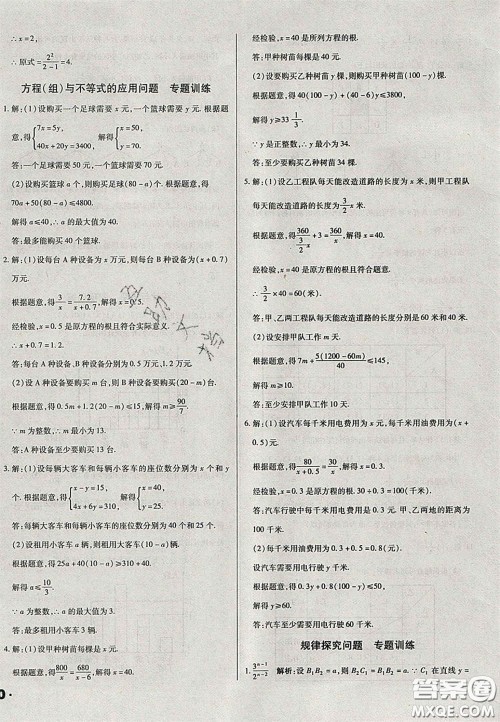 ∴x=2,
∴原式=2²/(2-1)=4.
方程(组)与不等式的应用问题 专题训练
1. 解:(1)设购买一个足球需要 x 元,一个篮球需要 y 元. 根据题
意,得{7x=5y, 40x+20y=3400, 解得{x=50, y=70.
答:一个足球需要 50 元,一个篮球需要 70 元.
(2)设购买篮球 a 个,则购买足球(80-a)个. 根据题意,得
70a+50(80-a)≤4800.
解得 a≤40,∴a 的最大值为 40.
答:最多能购买 40 个篮球.
2. 解:(1)设每台 A 种设备 x 万元,则每台 B 种设备(x+0.7)
万元.
根据题意,得3/x=7.2/(x+0.7),解得 x=0.5.
经检验,x=0.5 是原方程的根且符合实际意义.
∴x+0.7=1.2.
答:每台 A 种设备、B 种设备分别为 0.5 万元,1.2 万元.
(2)设 A 种设备购买 m 台,则 B 种设备购买(20-m)台.
根据题意,得 0.5m+1.2(20-m)≤15,解得 m≥90/7.
∵m 为整数,∴m 最小为 13.
答:A 种设备至少要购买 13 台.
3. 解:(1)设每辆大客车和每辆小客车的座位数分别是 x 个、y 个.
根据题意,得{x-y=15, 4x+6y=310, 解得{x=40, y=25.
答:每辆大客车和每辆小客车的座位数分别为 40 个和 25 个.
(2)设租用小客车 a 辆,则租用大客车(10-a)辆.
根据题意,得 25a+40(10-a)≥310+40.
解得 a≤10/3.
∵a 为整数,∴a 的最大值为 3.
答:最多租用小客车 3 辆.
4. 解:(1)设甲种树苗每棵 x 元,则乙种树苗每棵(x-6)元.
根据题意,得800/x=680/(x-6),解得 x=40.
经检验,x=40 是所列方程的根.
答:甲种树苗每棵是 40 元.
(2)设要购买乙种树苗 y 棵,则购买甲种树苗(100-y)棵.
根据题意,得 40(100-y)+(40-6)y≤3800.
解得 y≥33 1/3.
∵y 是正整数,∴y 最小为 34.
答:至少要购买乙种树苗 34 棵.
5. 解:(1)设乙工程队每天能改造道路的长度为 x 米,则甲工程队
每天能改造道路的长度为3/2 x 米.
根据题意,得360/(3/2 x)+3=360/x,解得 x=40.
经检验,x=40 是原方程的根且符合题意.
∴3/2×40=60(米).
答:甲、乙两工程队每天能改造道路的长度分别为 60 米、40 米.
(2)设安排甲队工作 m 天.
根据题意,得 7m+5(1200-60m)/40≤145,解得 m≥10.
答:至少安排甲队工作 10 天.
6. 解:(1)设汽车每千米用电费用为 x 元,则每千米用油费用为(x+
0.5)元.
根据题意,得80/(x+0.5)=30/x,解得 x=0.3.
经检验,x=0.3 是原方程的根.
答:汽车行驶中每千米用电费用是 0.3 元. 甲、乙两地的距离是
100 千米.
(2)每千米用油费用为 0.3+0.5=0.8(元).
设汽车需要用电行驶 y 千米.
根据题意,得 0.3y+0.8(100-y)≤50.
解得 y≥60.
答:至少需要用电行驶 60 千米.
规律探究问题 专题训练
1. 3ⁿ⁻¹/2ⁿ⁻² 解析:设 B₁B₂=a,则 B₂C₁=B₁B₂=a. 在直线 y=
答案圈
MXQE.COM